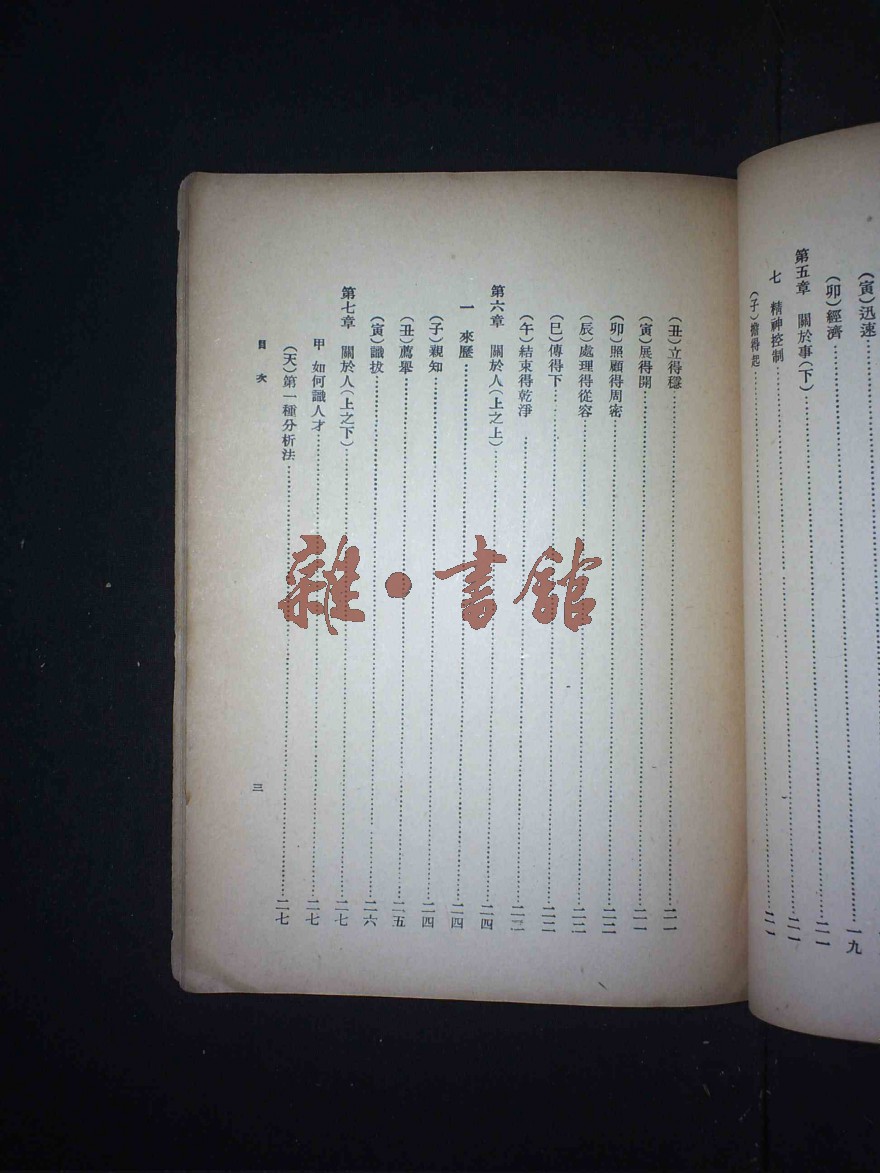 （寅）迅速……一九
（卯）經濟……二一
第五章　關於事（下）……二一
七　精神控制……二一
（子）擔得起……二一
（丑）立得穩……二一
（寅）展得開……二一
（卯）照顧得周密……二二
（辰）處理得從容……二二
（巳）傳得下……二二
（午）結束得乾淨……二三
第六章　關於人（上之上）……二四
一　來歷……二四
（子）親知……二四
（丑）薦舉……二五
（寅）識拔……二六
第七章　關於人（上之下）……二七
甲　如何識人才……二七
（天）第一種分析法……二七
目次
三
雜·書館